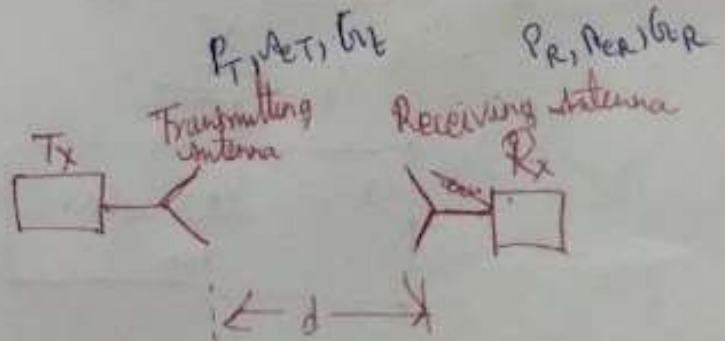 P_T, A_eT, G_t
P_R, A_eR, G_R
Transmitting
Antenna
Receiving Antenna
Tx
Rx
d